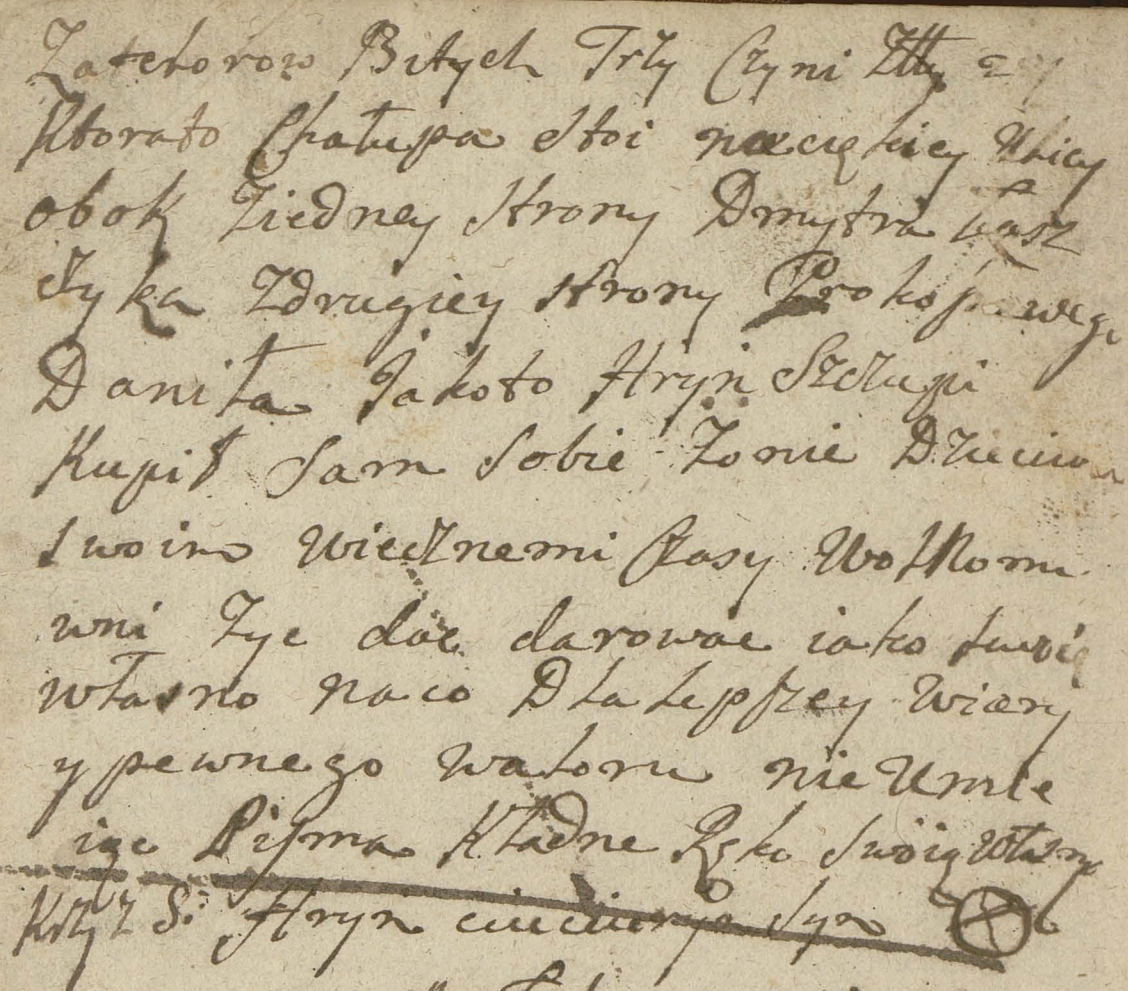 Zatelorow Bitych Trzy Czyni Złty
Ktorato Chałupa Stoi naciękiey Ulicy
obok Ziedney Strony Dmytra Wasz
czyka Zdrugiey strony
Daniła Jakoto Hryń Szczupi
Kupił Sam Sobie Żonie
swoim wiecznemi Czasy
wni Żyć dać darować iako swoię
własno naco Dla Lepszey Wiary
y pewnego waloru nie Umie
iąc Pisma Kładne Rękę Swoią własny
Krzyż S: Hryń ciuciuryn Syn